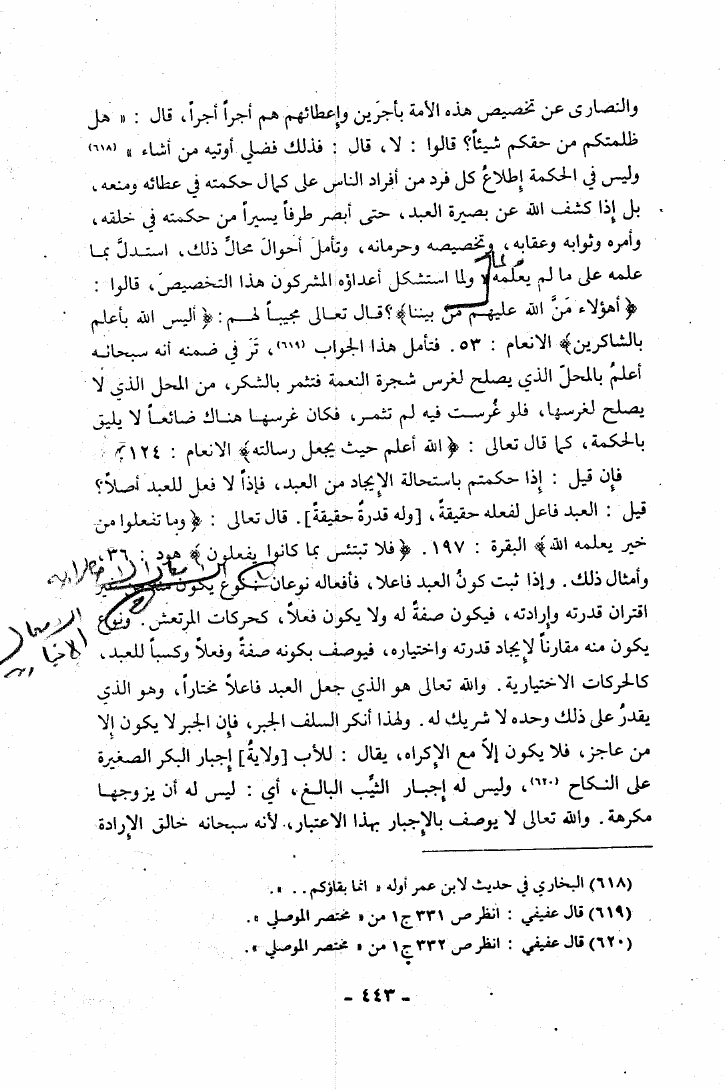 والنصارى عن تخصيص هذه الأمة بأجرَين وإعطائهم هم أجراً أجراً، قال : « هل
ظلمتكم من حقكم شيئاً؟ قالوا : لا، قال : فذلك فضلي أوتيه من أشاء » (٦١٨)
وليس في الحكمة إطلاعُ كل فرد من أفراد الناس على كمال حكمته في عطائه ومنعه،
بل إذا كشف الله عن بصيرة العبد، حتى أبصر طرفاً يسيراً من حكمته في خلقه،
وأمره وثوابه وعقابه، وتخصيصه وحرمانه، وتأملَ أحوالَ محالِّ ذلك، استدلَّ بما
علمه على ما لم يعلمه، ولما استشكل أعداؤه المشركون هذا التخصيصَ، قالوا :
﴿ أهؤلاء مَنَّ الله عليهم من بيننا﴾؟ قال تعالى مجيباً لهم : ﴿ أليس الله بأعلم
بالشاكرين﴾ الانعام : ٥٣. فتأمل هذا الجواب (٦١٩)، تَرَ في ضمنه أنه سبحانه
أعلمُ بالمحلّ الذي يصلح لغرس شجرة النعمة فتثمر بالشكر، من المحل الذي لا
يصلح لغرسها، فلو غُرست فيه لم تثمر، فكان غرسها هناك ضائعاً لا يليق
بالحكمة، كما قال تعالى : ﴿ الله أعلم حيث يجعل رسالته﴾ الانعام : ١٢٤
فإن قيل : إذا حكمتم باستحالة الإيجاد من العبد، فإذاً لا فعل للعبد أصلاً؟
قيل : العبد فاعل لفعله حقيقةً، [وله قدرةٌ حقيقةً]. قال تعالى : ﴿ وما تفعلوا من
خير يعلمه الله﴾ البقرة : ١٩٧. ﴿ فلا تبتئس بما كانوا يفعلون﴾ هود : ٣٦،
وأمثال ذلك. وإذا ثبت كونُ العبد فاعلا، فأفعاله نوعان : نوع يكون منه من غير
اقتران قدرته وإرادته، فيكون صفةً له ولا يكون فعلاً، كحركات المرتعش. ونوع
يكون منه مقارناً لإيجاد قدرته واختياره، فيوصف بكونه صفةً وفعلاً وكسباً للعبد،
كالحركات الاختيارية. والله تعالى هو الذي جعل العبد فاعلاً مختاراً، وهو الذي
يقدرُ على ذلك وحده لا شريك له. ولهذا أنكر السلف الجبر، فإن الجبر لا يكون إلا
من عاجز، فلا يكون إلاَّ مع الإكراه، يقال : للأب [ولايةُ] إجبار البكر الصغيرة
على النكاح (٦٢٠)، وليس له إجبار الثيِّب البالغ، أي : ليس له أن يزوجها
مكرهة. والله تعالى لا يوصف بالإجبار بهذا الاعتبار، لأنه سبحانه خالق الإرادة
(٦١٨) البخاري في حديث لابن عمر أوله « انما بقاؤكم . . ».
(٦١٩) قال عفيفي : انظر ص ٣٣١ ج١ من « مختصر الموصلي ».
(٦٢٠) قال عفيفي : انظر ص ٣٣٢ ج١ من « مختصر الموصلي ».
- ٤٤٣ -